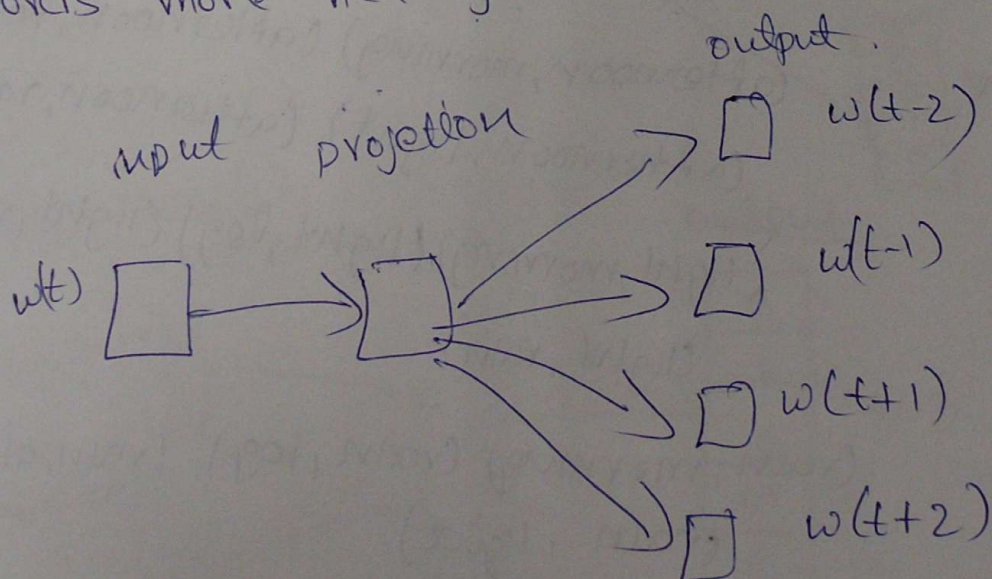 more
output.
input projetion
w(t-2)
w(t)
w(t-1)
w(t+1)
w(t+2)